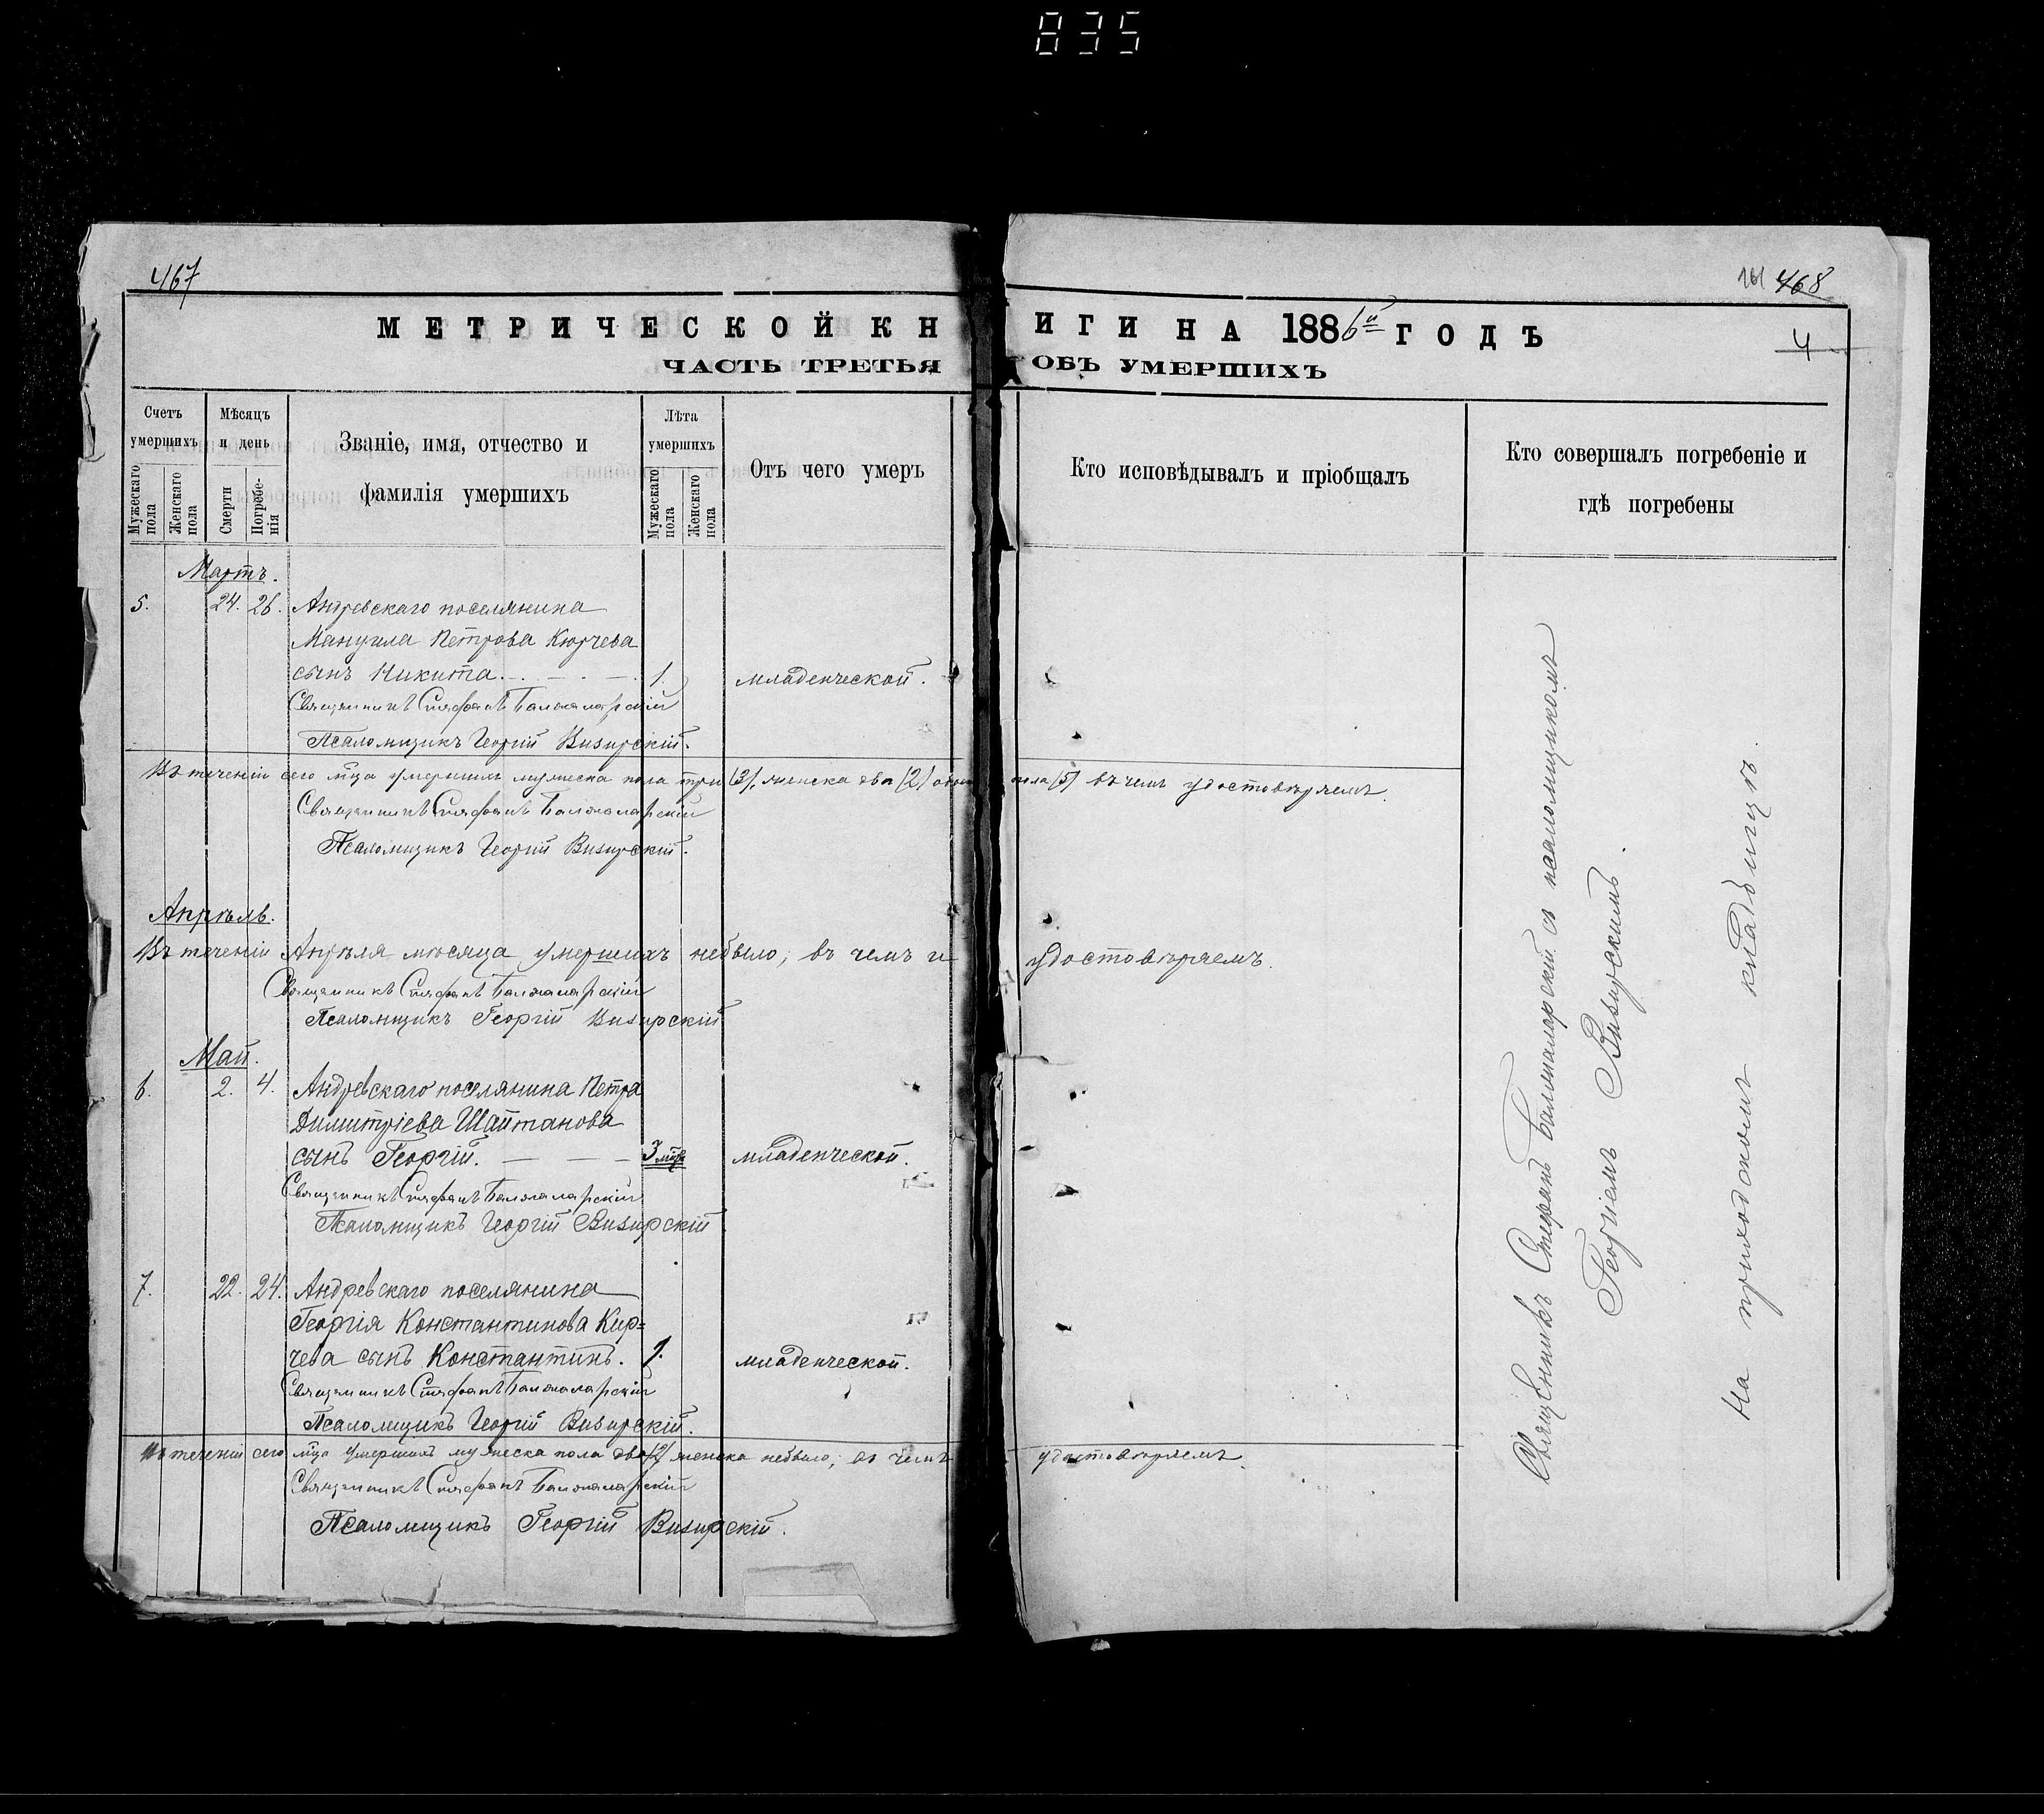 835
467
161 468
4
МЕТРИЧЕСКОЙ КНИГИ НА 1886й ГОДЪ
ЧАСТЬ ТРЕТЬЯ ОБЪ УМЕРШИХЪ
Счетъ умершихъ
Мужескаго пола
Женскаго пола
Мѣсяцъ и день
Смерти
Погребенія
Званіе, имя, отчество и фамилія умершихъ
Лѣта умершихъ
Мужескаго пола
Женскаго пола
Отъ чего умеръ
Кто исповѣдывалъ и пріобщалъ
Кто совершалъ погребеніе и гдѣ погребены
Мартъ.
5. 24. 26. Андревскаго поселянина
Мануила Петрова Кюрчева
сынъ Никита. 1. младенческой.
Священникъ Стефанъ Балжаларскій
Псаломщикъ Георгій Визирскій.
Въ теченіи сего мца умершихъ мужеска пола три (3), женска два (2) обоего пола (5) въ чемъ удостовѣряемъ.
Священникъ Стефанъ Балжаларскій
Псаломщикъ Георгій Визирскій.
Апрѣль.
Въ теченіи Апрѣля мѣсяца умершихъ небыло; въ чемъ и удостовѣряемъ.
Священникъ Стефанъ Балжаларскій
Псаломщикъ Георгій Визирскій
Май.
6. 2. 4. Андревскаго поселянина Петра
Димитріева Шайтанова
сынъ Георгій. 3 мца младенческой.
Священникъ Стефанъ Балжаларскій
Псаломщикъ Георгій Визирскій
7. 22. 24. Андревскаго поселянина
Георгія Константинова Кир=
чева сынъ Константинъ. 1. младенческой.
Священникъ Стефанъ Балжаларскій
Псаломщикъ Георгій Визирскій.
Въ теченіи сего мца умершихъ мужеска пола два (2) женска небыло; въ чемъ удостовѣряемъ.
Священникъ Стефанъ Балжаларскій
Псаломщикъ Георгій Визирскій.
Священникъ Стефанъ Балжаларскій съ псаломщикомъ
Георгіемъ Визирскимъ.
На приходскомъ кладбищѣ.